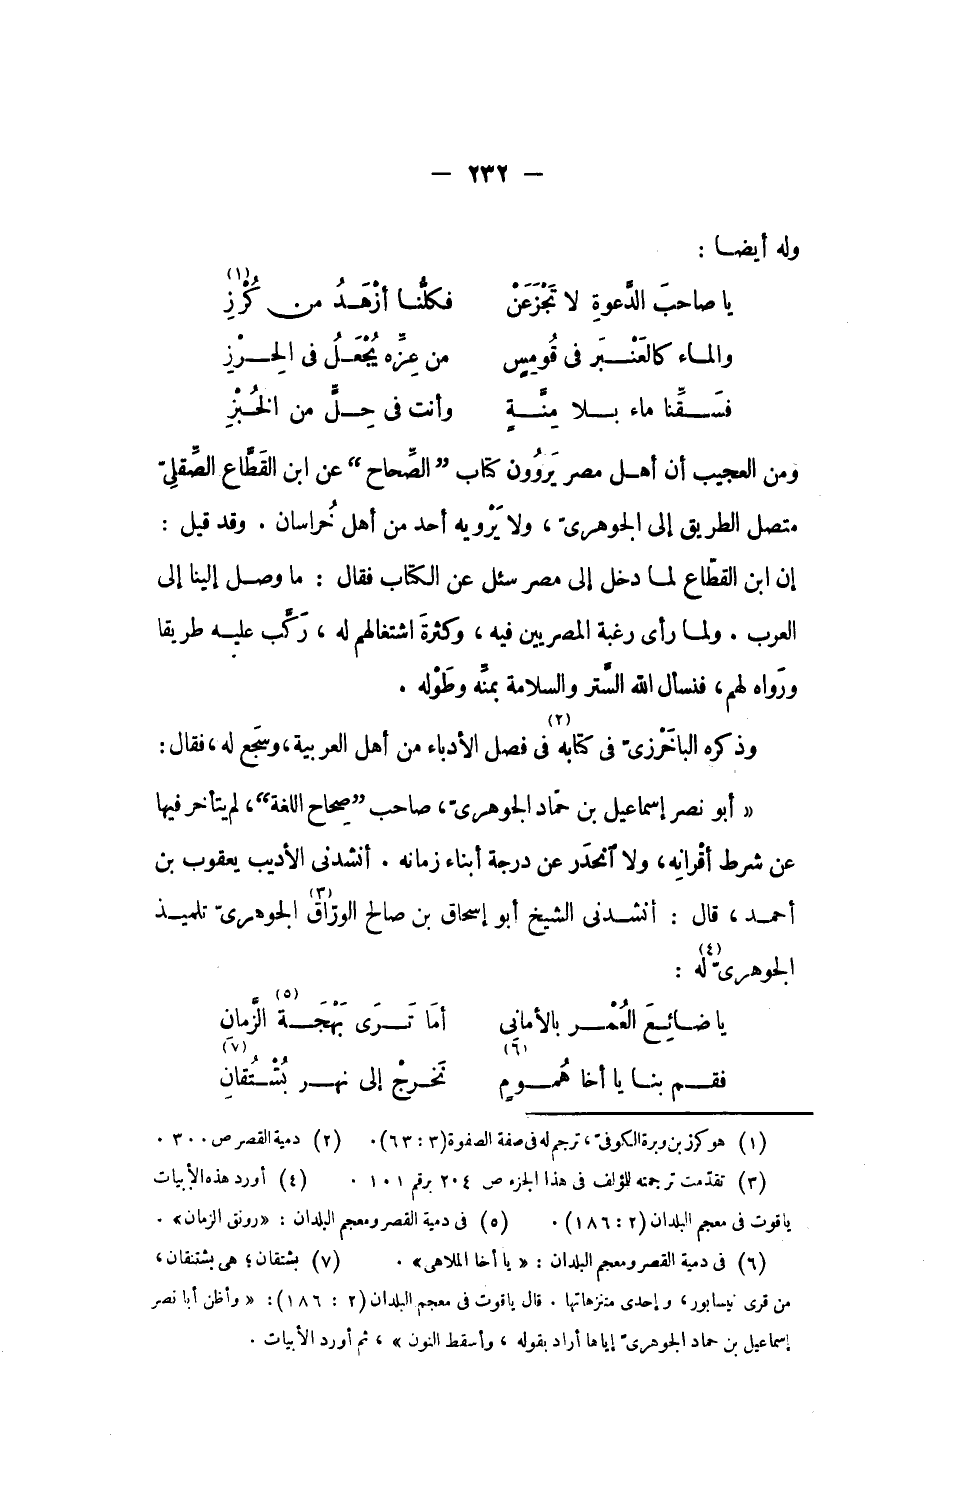 — ٢٣٢ —
وله أيضا :
يا صاحبَ الدَّعوةِ لا تَجْزَعَنْ فكلُّنا أزْهَدُ من كُرْزِ (١)
والماء كالعَنْبَر فى قُومِسٍ من عِزِّه يُجْعَلُ فى الحِرْزِ
فسَقِّنا ماء بلا مِنَّةٍ وأنت فى حِلٍّ من الخُبْزِ
ومن العجيب أن أهل مصر يَرْوُون كتاب ”الصِّحاح“ عن ابن القَطَّاع الصِّقلىّ
متصل الطريق إلى الجوهرىّ، ولا يَرْويه أحد من أهل خُراسان . وقد قيل :
إن ابن القطّاع لما دخل إلى مصر سئل عن الكتاب فقال : ما وصل إلينا إلى
العرب . ولما رأى رغبة المصريين فيه، وكثرةَ اشتغالهم له، رَكَّب عليه طريقا
ورَواه لهم، فنسأل الله السَّتر والسلامة بمنَّه وطَوْله .
وذكره الباخَرْزىّ فى كتابه (٢) فى فصل الأدباء من أهل العربية، وسجَع له، فقال :
« أبو نصر إسماعيل بن حمّاد الجوهرىّ، صاحب ”صِحاح اللغة“، لم يتأخر فيها
عن شرط أقْرانِه، ولا آنحدَر عن درجة أبناء زمانه . أنشدنى الأديب يعقوب بن
أحمد، قال : أنشدنى الشيخ أبو إسحاق بن صالح الورّاق (٣) الجوهرىّ تلميذ
الجوهرىّ له (٤) :
يا ضائِعَ العُمْر بالأمانِى أمَا تَرَى بَهْجَةَ (٥) الزَّمانِ
فقم بنا يا أخا هُمومٍ (٦) نَخرجْ إلى نهر بُشْتُقانِ (٧)
(١) هو كرز بن وبرة الكوفىّ، ترجم له فى صفة الصفوة (٣ : ٦٣). (٢) دمية القصر ص ٣٠٠ .
(٣) تقدّمت ترجمته للؤلف فى هذا الجزء ص ٢٠٤ برقم ١٠١ . (٤) أورد هذه الأبيات
ياقوت فى معجم البلدان (٢ : ١٨٦). (٥) فى دمية القصر ومعجم البلدان : «رونق الزمان» .
(٦) فى دمية القصر ومعجم البلدان : « يا أخا الملاهى» . (٧) بشتقان؛ هى بشتنقان،
من قرى نيسابور، و إحدى متنزهاتها . قال ياقوت فى معجم البلدان (٢ : ١٨٦): « وأظن أبا نصر
إسماعيل بن حماد الجوهرىّ إياها أراد بقوله، وأسقط النون »، ثم أورد الأبيات .